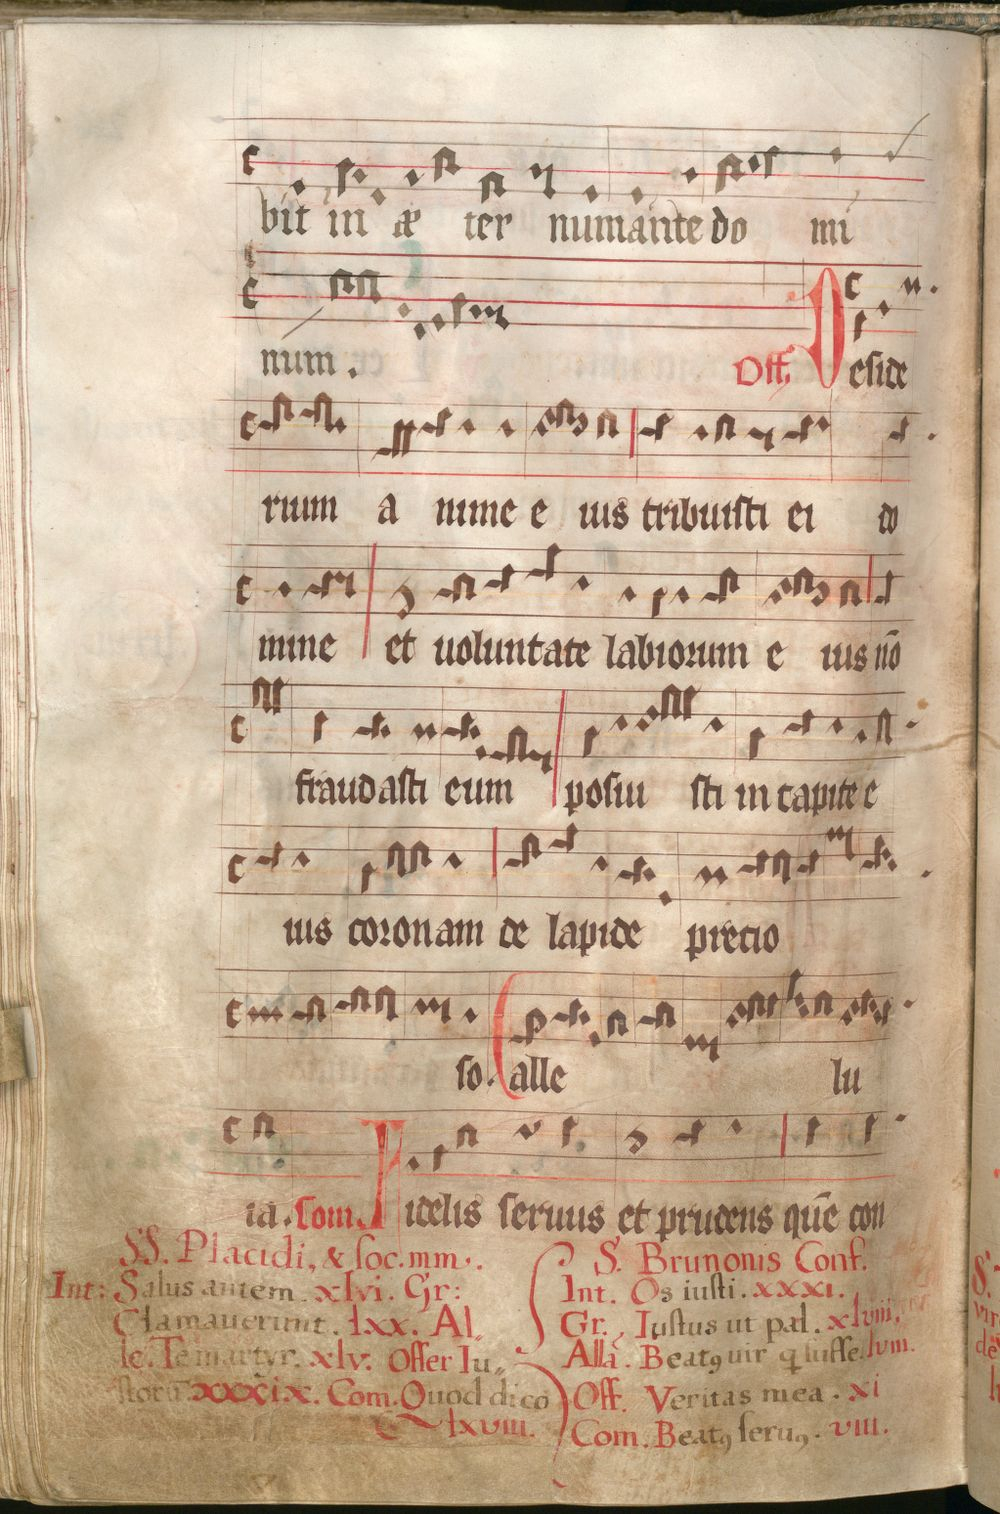 bit in æ ter numante do mi
num. Off. Deside
rium a nime e ius tribuisti ei do
mine et uoluntate labiorum e ius nō
fraudasti eum posui sti in capite e
ius coronam de lapide precio
so. alle lu
ia. Com. Fidelis seruus et prudens quē con
SS. Placidi, & soc. mm.
Int: Salus autem. xlvi. Gr:
Clamauerunt. lxx. Al
le. Te martyr. xlv. Offer Iu
storū xxxix. Com. Quod dico
lxviii.
S. Brunonis Conf.
Int. Os iusti. xxxi.
Gr. Iustus ut pal. xlviii.
Alla. Beatꝯ uir q suffe. lviii.
Off. Veritas mea. xi
Com. Beatꝯ seruꝯ. viii.